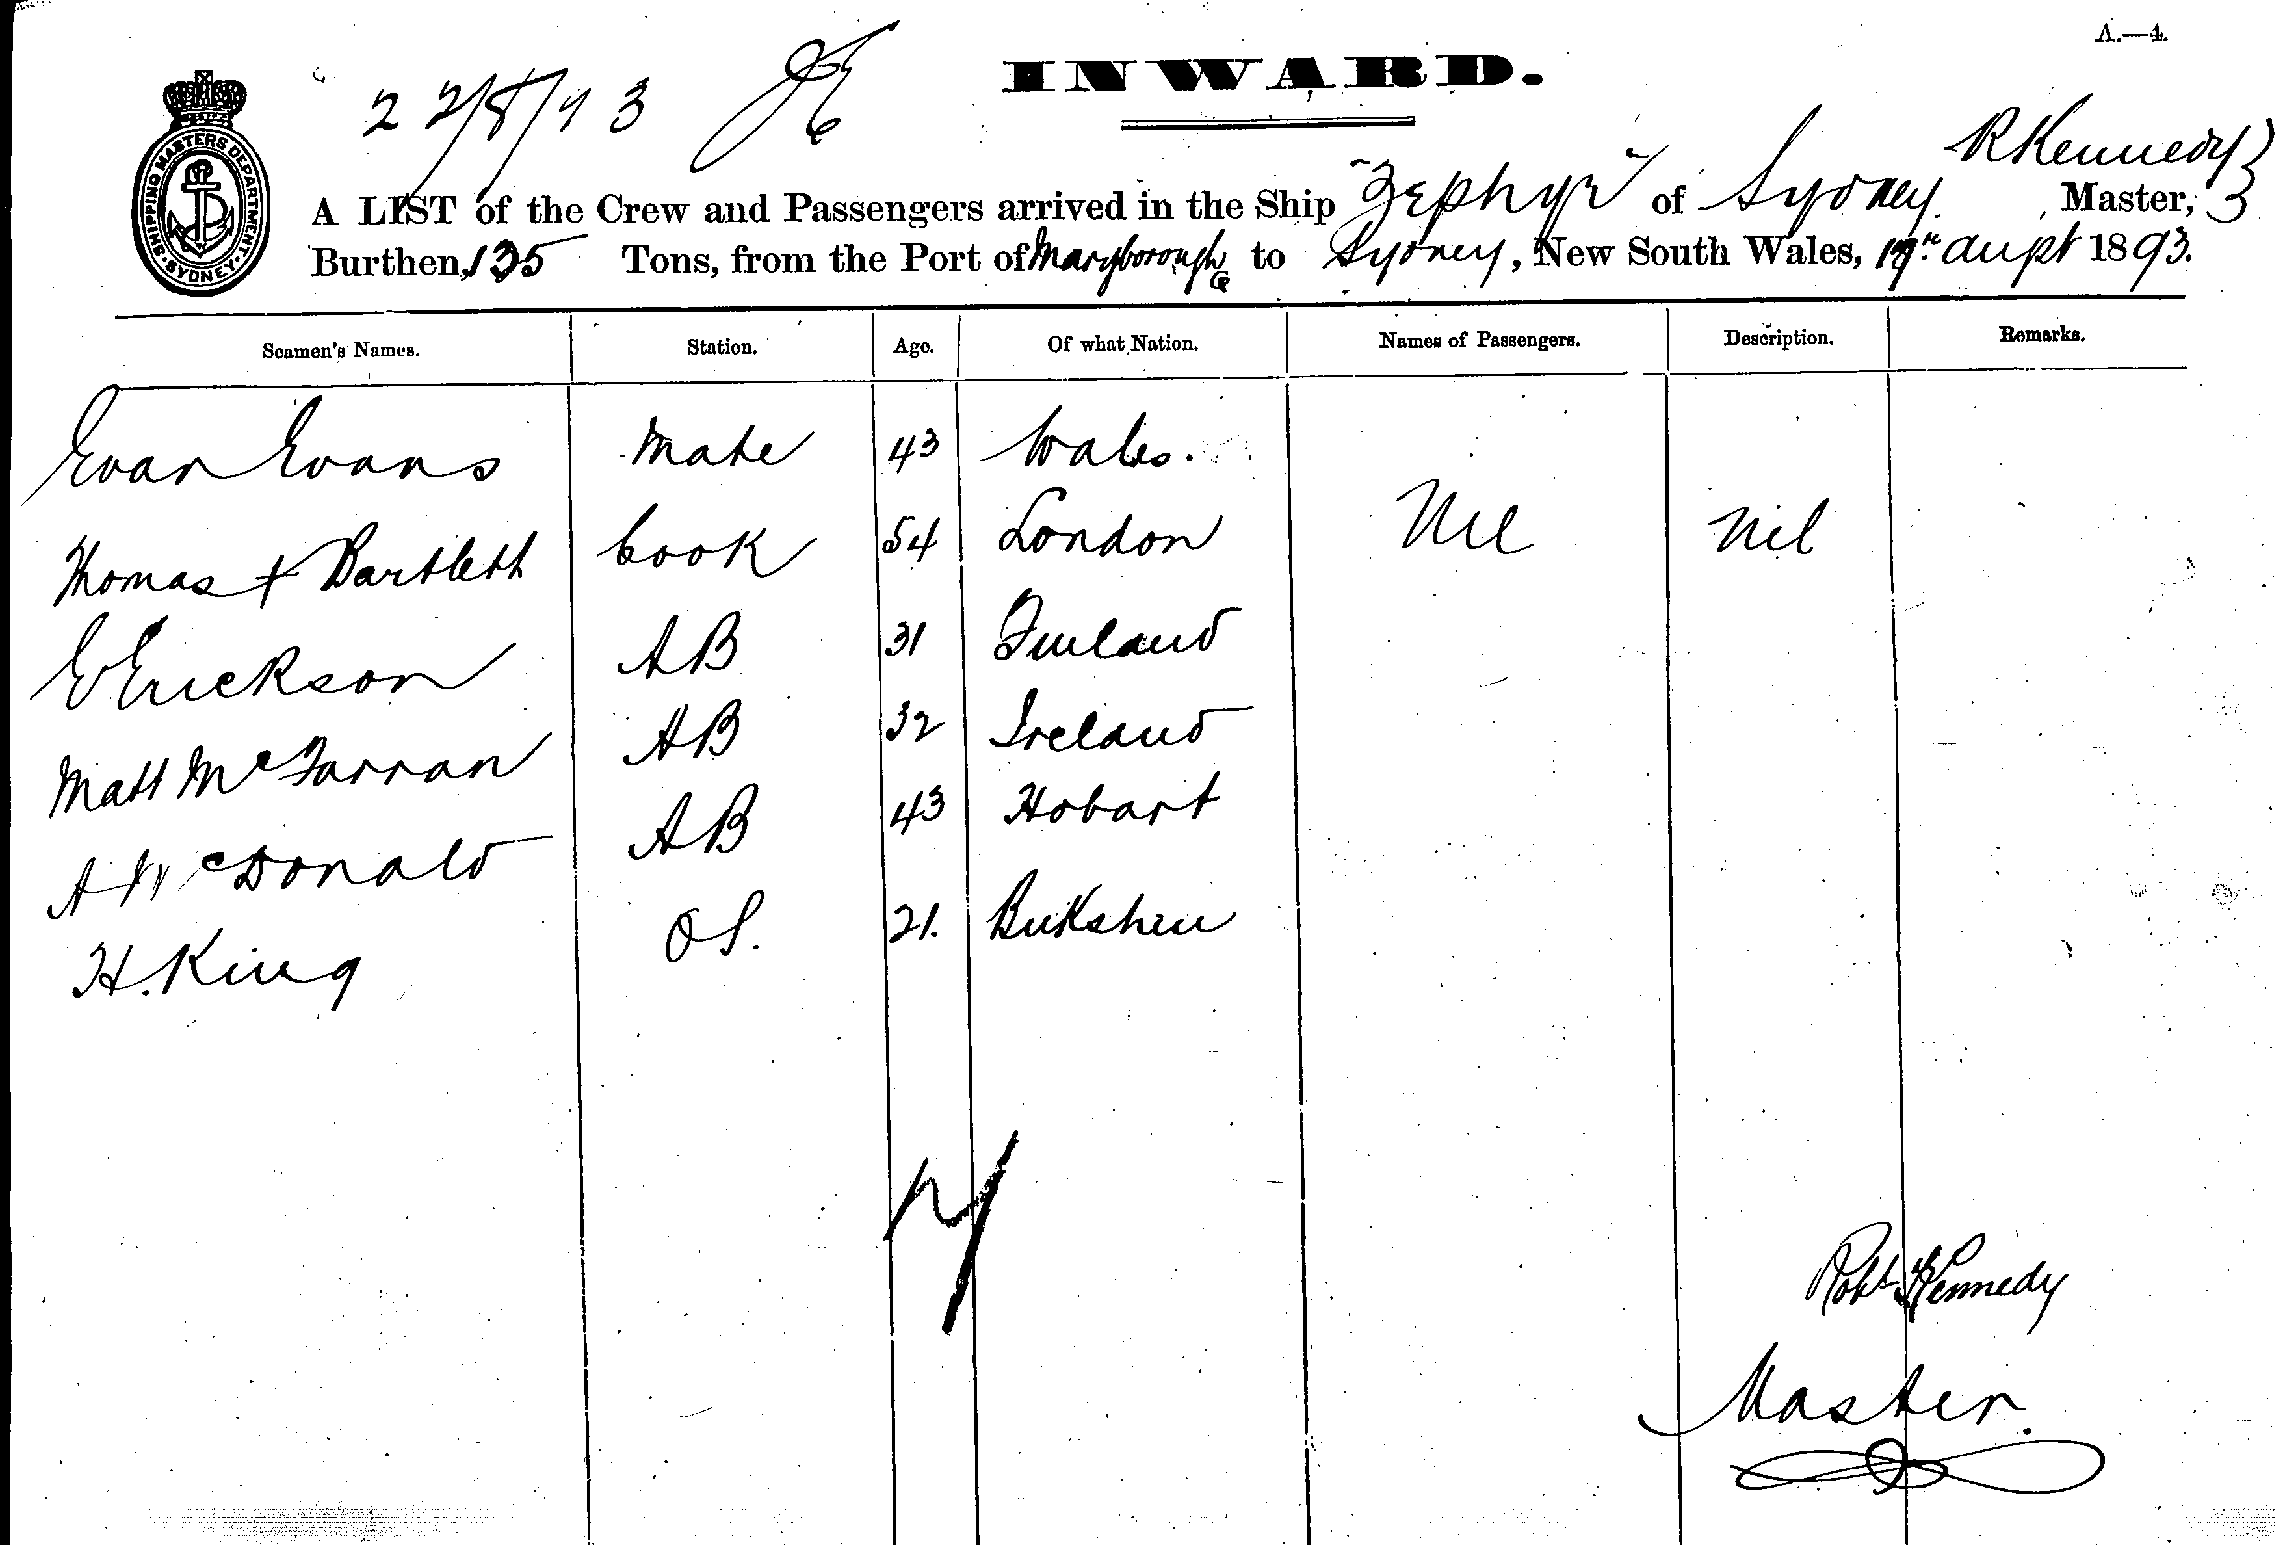 A.—4.
22/8/93
INWARD.
SHIPPING MASTERS DEPARTMENT. SYDNEY.
R Kennedy
A LIST of the Crew and Passengers arrived in the Ship "Zephyr" of Sydney. Master, 3
Burthen, 135 Tons, from the Port of Maryborough to Sydney, New South Wales, 19th Augst 1893.
Seamen's Names. Station. Age. Of what Nation. Names of Passengers. Description. Remarks.
Evan Evans Mate 43 Wales.
Thomas + Bartlett Cook 54 London Nil Nil
E Erickson AB 31 Finland
Matt McFarran AB 32 Ireland
A McDonald AB 43 Hobart
H. King OS. 21. Berkshire
Robt Kennedy
Master.